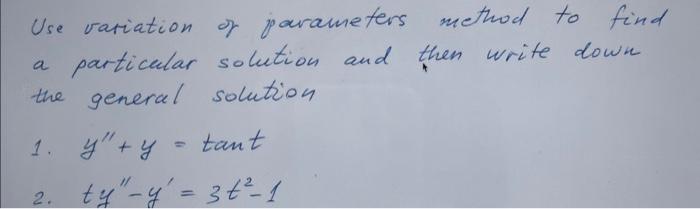 Use variation of parameters method to find
a particular solution and then write down
the general solution
1. y" + y = tant
2. ty" - y' = 3t² - 1